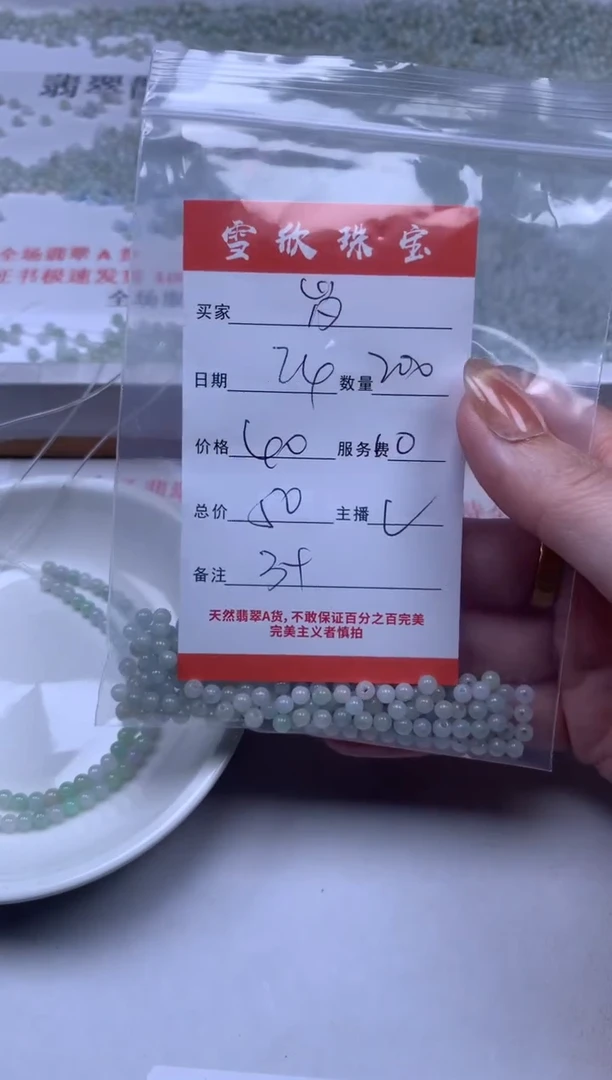 翡翠
全场翡翠A货
证书极速发
全场
雪欣珠宝
买家
日期 24 数量 200
价格 60 服务费 10
总价 主播
备注 3+
天然翡翠A货,不敢保证百分之百完美
完美主义者慎拍
翡翠